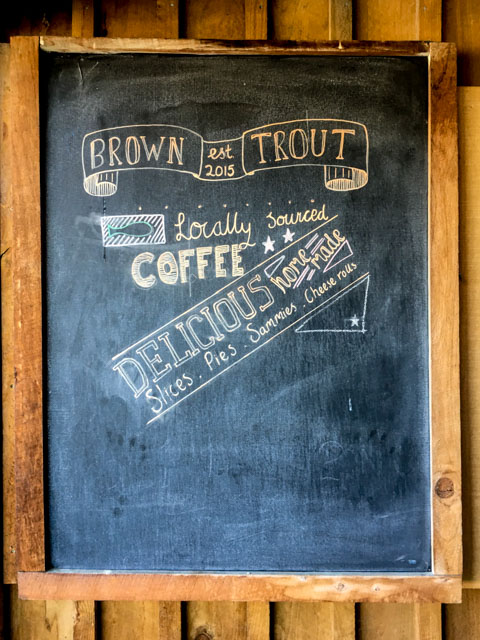 BROWN est. TROUT
2015
Locally Sourced
COFFEE
DELICIOUS home made
Slices . Pies . Sammies . Cheese rolls